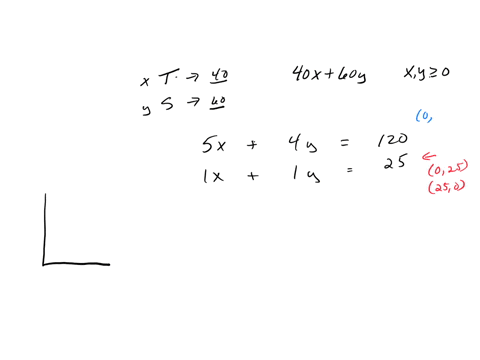 x T. → 40 40x+60y x,y ≥ 0
y S → 60
(0,
5x + 4y = 120
1x + 1y = 25 ← (0,25)
(25,0)